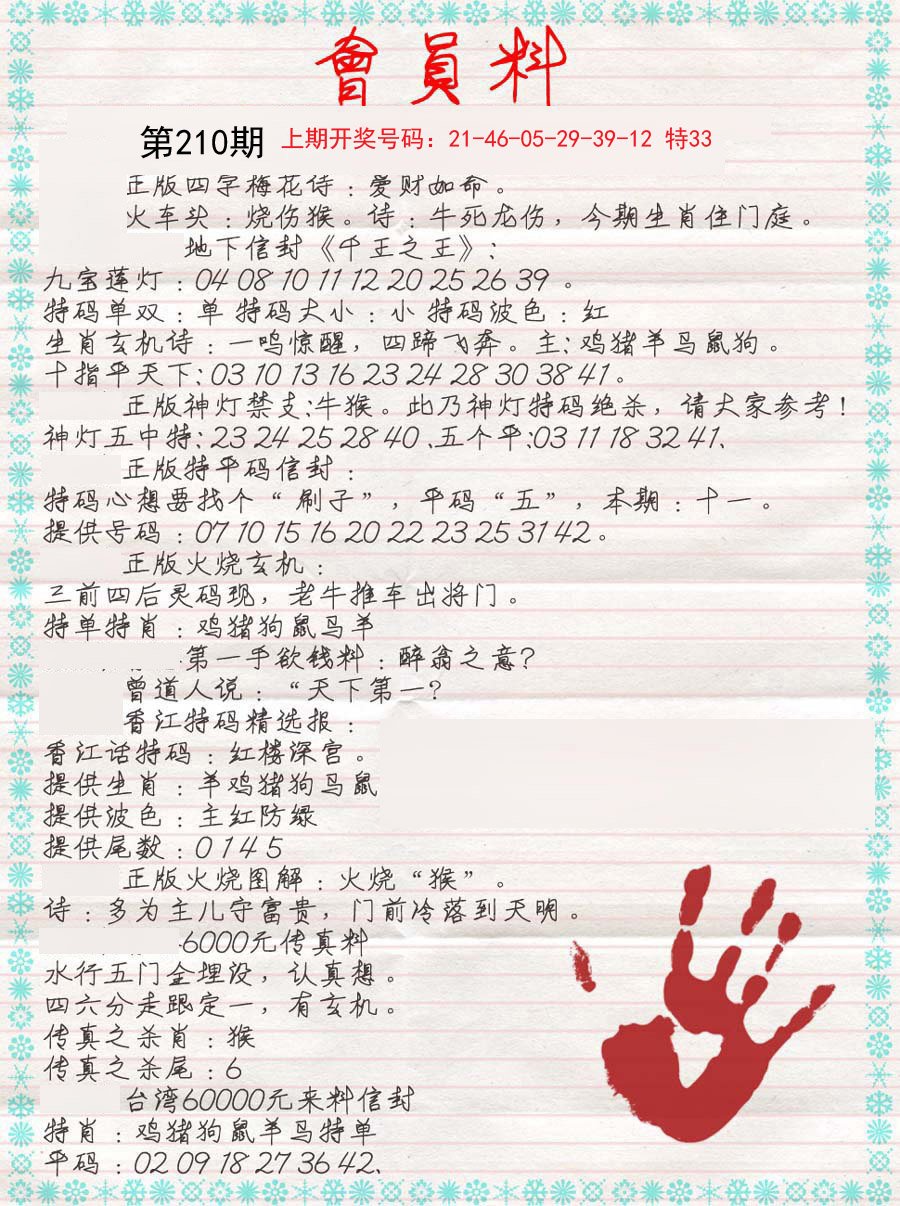 會員料
第210期 上期开奖号码：21-46-05-29-39-12 特33
正版四字梅花诗：爱财如命。
火车头：烧伤猴。诗：牛死龙伤，今期生肖住门庭。
地下信封《千王之王》：
九宝莲灯：04 08 10 11 12 20 25 26 39 。
特码单双：单 特码大小：小 特码波色：红
生肖玄机诗：一鸣惊醒，四蹄飞奔。主：鸡猪羊马鼠狗。
十指平天下：03 10 13 16 23 24 28 30 38 41。
正版神灯禁支：牛猴。此乃神灯特码绝杀，请大家参考！
神灯五中特：23 24 25 28 40 、五个平：03 11 18 32 41、
正版特平码信封：
特码心想要找个“刷子”，平码“五”，本期：十一。
提供号码：07 10 15 16 20 22 23 25 31 42 。
正版火烧玄机：
三前四后灵码现，老牛推车出将门。
特单特肖：鸡猪狗鼠马羊
第一手欲钱料：醉翁之意？
曾道人说：“天下第一？
香江特码精选报：
香江话特码：红楼深宫。
提供生肖：羊鸡猪狗马鼠
提供波色：主红防绿
提供尾数：0 1 4 5
正版火烧图解：火烧“猴”。
诗：多为主儿守富贵，门前冷落到天明。
6000元传真料
水行五门金埋没，认真想。
四六分走跟定一，有玄机。
传真之杀肖：猴
传真之杀尾：6
台湾60000元来料信封
特肖：鸡猪狗鼠羊马特单
平码：02 09 18 27 36 42、